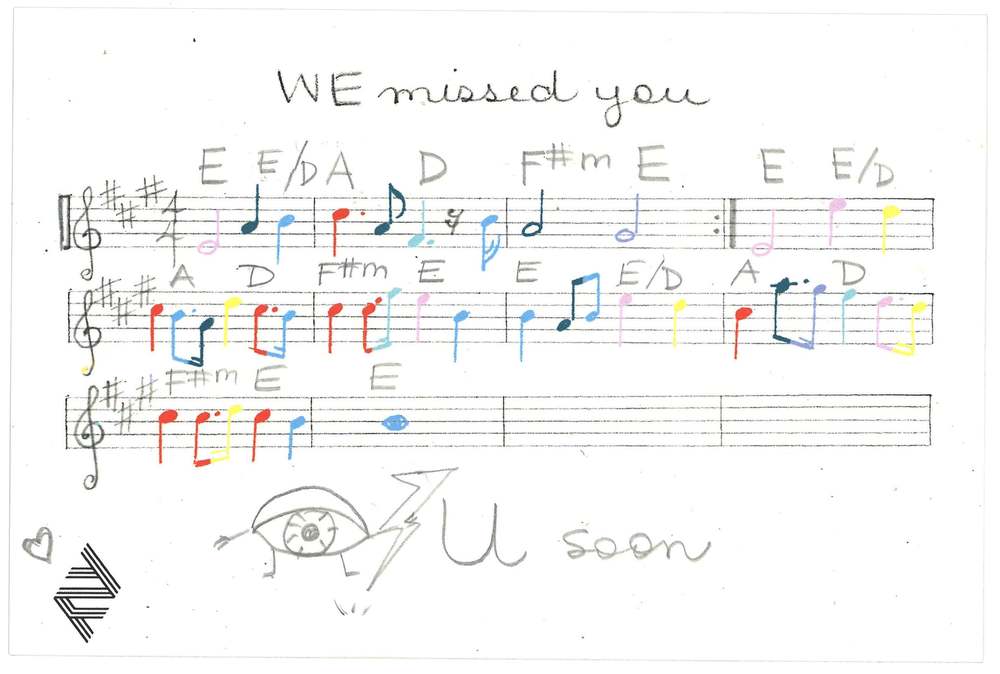 WE missed you
E E/D A D F#m E E E/D
4
4
A D F#m E E E/D A D
F#m E E
U soon